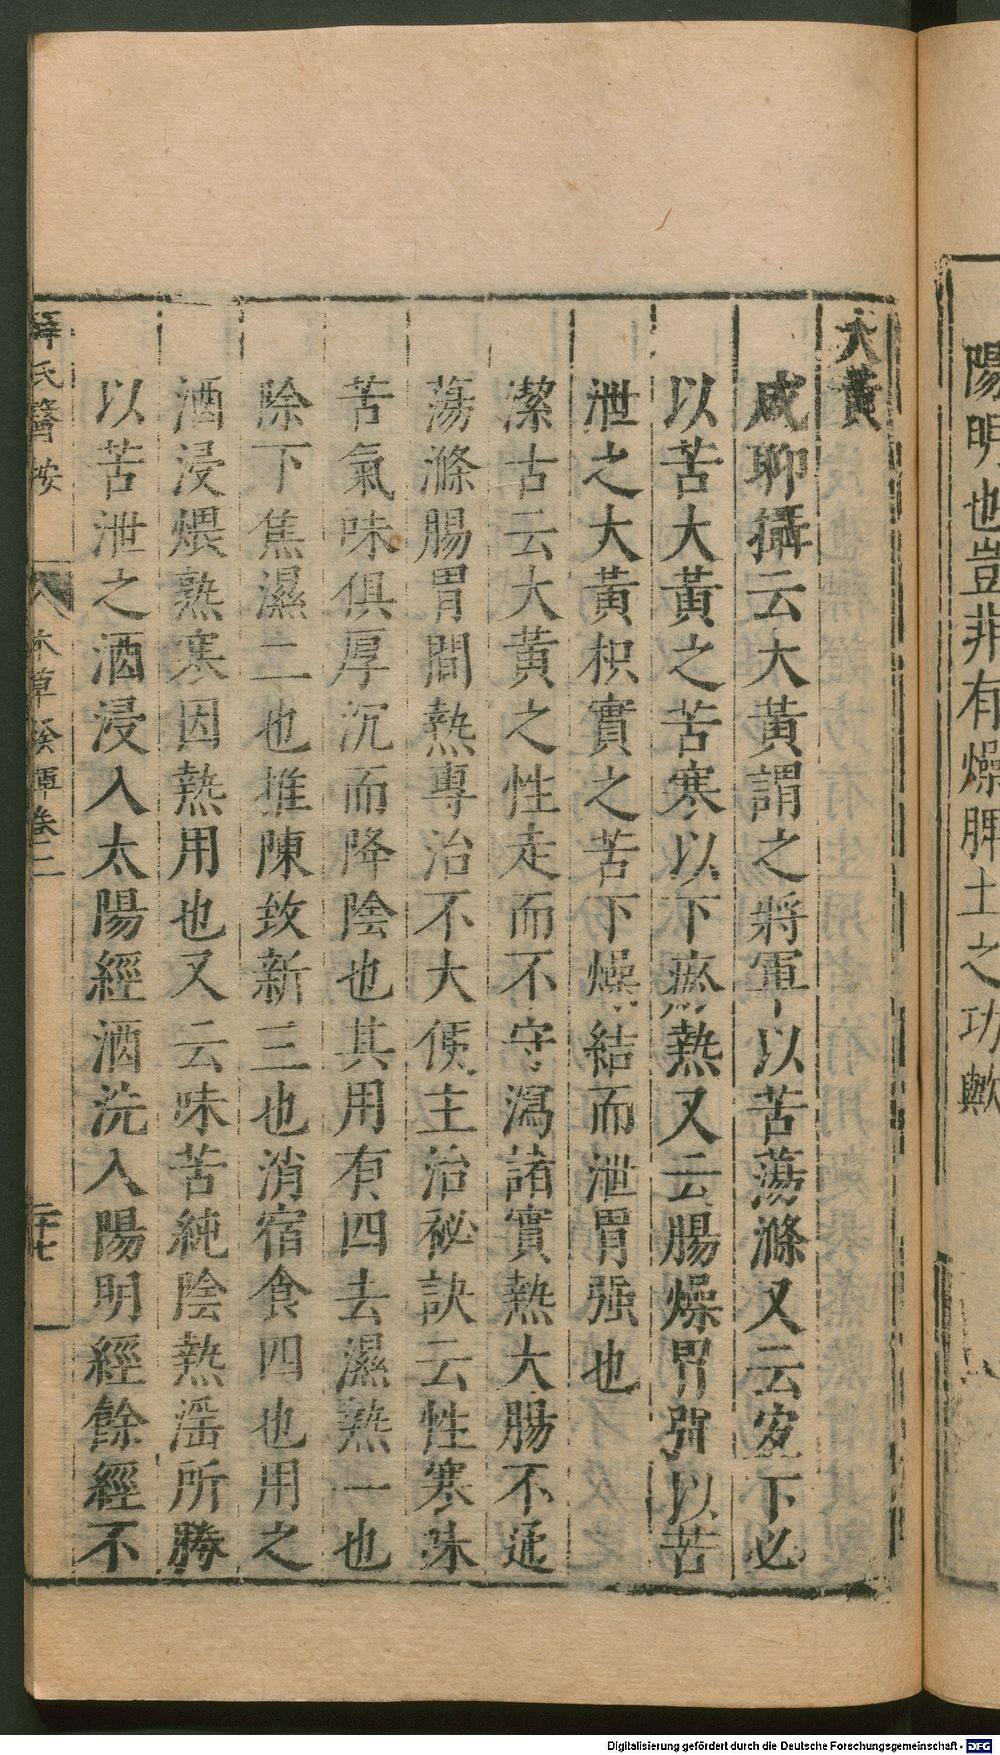 陽明也豈非有燥脾土之功歟
大黃
成聊攝云大黃謂之將軍以苦蕩滌又云宜下必
以苦大黃之苦寒以下瘀熱又云腸燥胃强以苦
泄之大黃枳實之苦下燥結而泄胃强也
潔古云大黃之性走而不守瀉諸實熱大腸不通
蕩滌腸胃間熱專治不大便主治祕訣云性寒味
苦氣味俱厚沉而降陰也其用有四去濕熱一也
除下焦濕二也推陳致新三也消宿食四也用之
酒浸煨熟寒因熱用也又云味苦純陰熱淫所勝
以苦泄之酒浸入太陽經酒洗入陽明經餘經不
薛氏醫按
本草發揮卷二
二十七
Digitalisierung gefördert durch die Deutsche Forschungsgemeinschaft - DFG